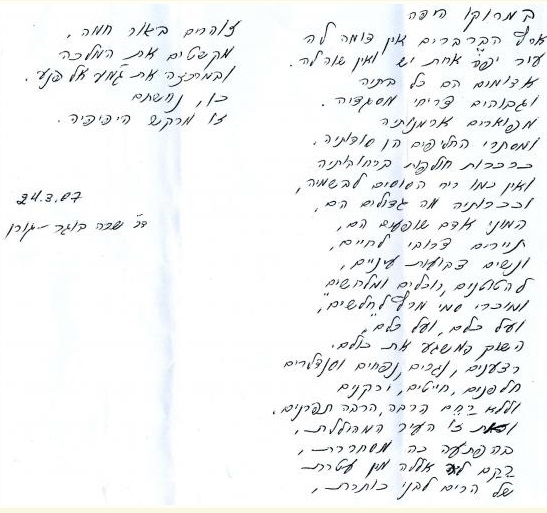 במרוקו היפה
ארץ הברברים אין דומה לה
עיר יפה אחת יש ואין שווה לה.
אדומים הם כל בתיה
וגבוהים צריחי מסגדיה.
מפוארים ארמנותיה
ומסתרי החליפים הן סודותיה.
כרכרות חולפות ברחובותיה
ואין כמו ריח הסוסים לבשמיה,
וככרותיה מה גדולים הם,
המוני אדם שופעים הם,
תיירים צרובי לחיים,
ונשים צבועות עיניים,
להטוטנים, רוכלים ומלחשים
ומוכרי סמי מרץ לחלשים,
ועל כלם, ועל כלם,
השוק המשגע את כולם.
רצענים, נגרים, נפחים וסנדלרים
חלפנים, חייטים, ירקנים
וללא הרבה, הרבה תפרנים.
וזאת זו העיר המהוללת,
בהפתעה כה מסחררת,
אללה מין עטרת
של הרים לבני כותרת,
צוהרים באור חמה,
מקשטים את המלכה
ובמרכזה את ג'מע אל פנע.
כן, נחשתם
זו מרקש היפיפיה.
24.3.07
דר' שרה בוגר-גורן